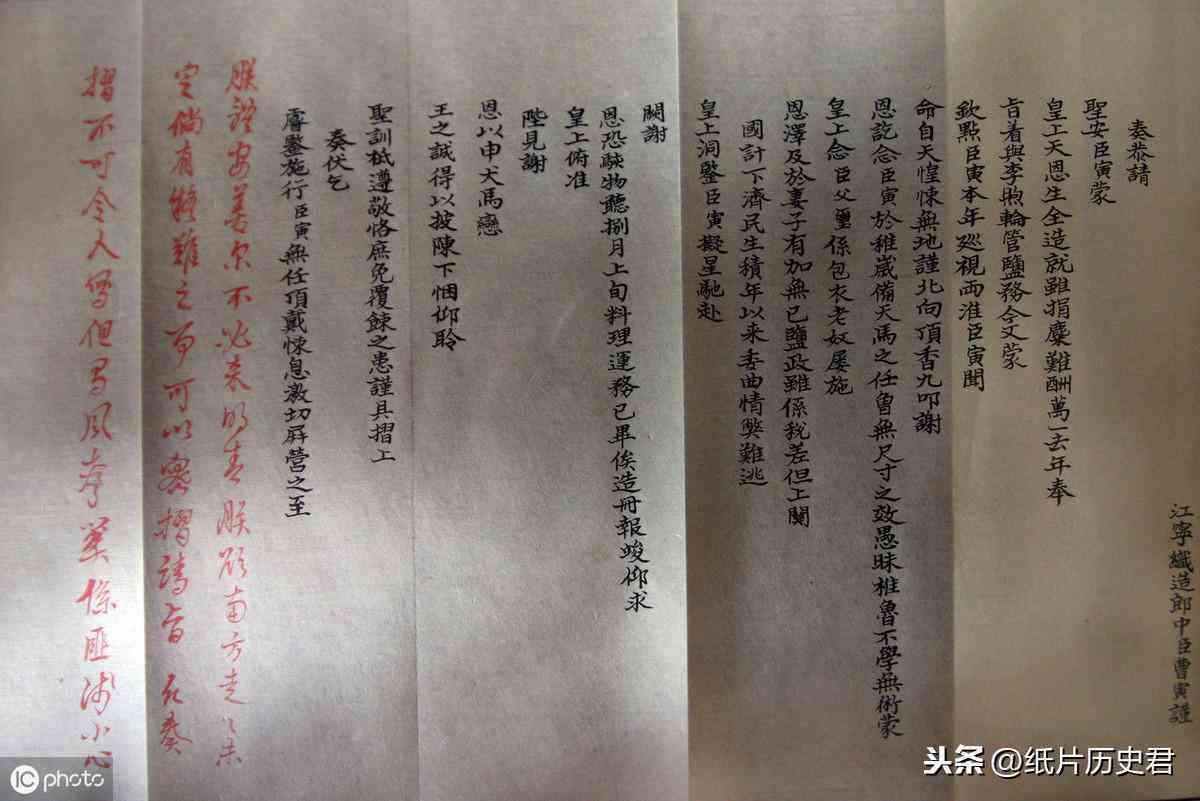 江寧織造郎中臣曹寅謹
奏恭請
聖安臣寅蒙
皇上天恩生全造就雖捐麋難酬萬一去年奉
旨着與李煦輪管鹽務今又蒙
欽點臣寅本年廵視兩淮臣寅聞
命自天惶悚無地謹北向頂香九叩謝
恩訖念臣寅於稚歲備犬馬之任曾無尺寸之效愚昧椎魯不學無術蒙
皇上念臣父璽係包衣老奴屡施
恩澤及於妻子有加無已鹽政雖係我差但上關
國計下濟民生積年以来委曲情獘難逃
皇上洞鑒臣寅擬星馳赴
闕謝
恩恐駭物聽捌月上旬料理運務已畢俟造冊報竣仰求
皇上俯准
陛見謝
恩以申犬馬戀
王之誠得以披陳下悃仰聆
聖訓祗遵敬恪庶免覆餗之患謹具摺上
奏伏乞
睿鑒施行臣寅無任頂戴悚息激切屏營之至
朕體安善尔不必来明春朕欲南方走走未
定倘有疑難之事可以密摺請旨 凡奏
摺不可令人寫但有風声關係匪浅小心
iC photo
头条 @纸片历史君